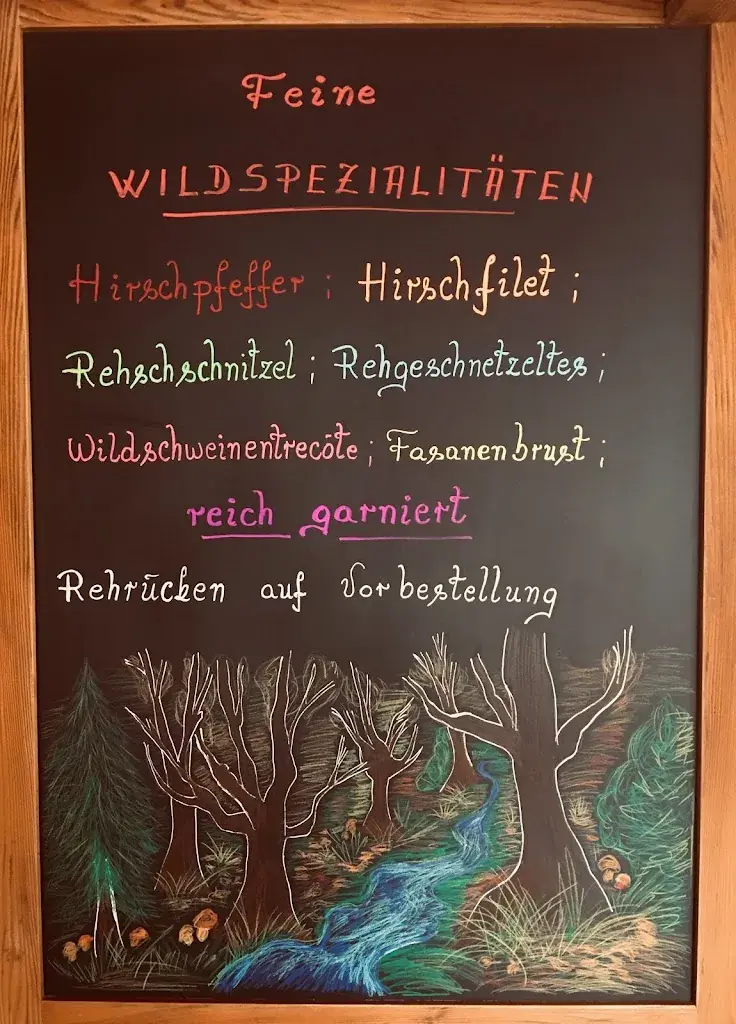 Feine
WILDSPEZIALITÄTEN
Hirschpfeffer ; Hirschfilet ;
Rehschschnitzel ; Rehgeschnetzeltes ;
Wildschweinentrecôte ; Fasanenbrust ;
reich garniert
Rehrücken auf Vorbestellung